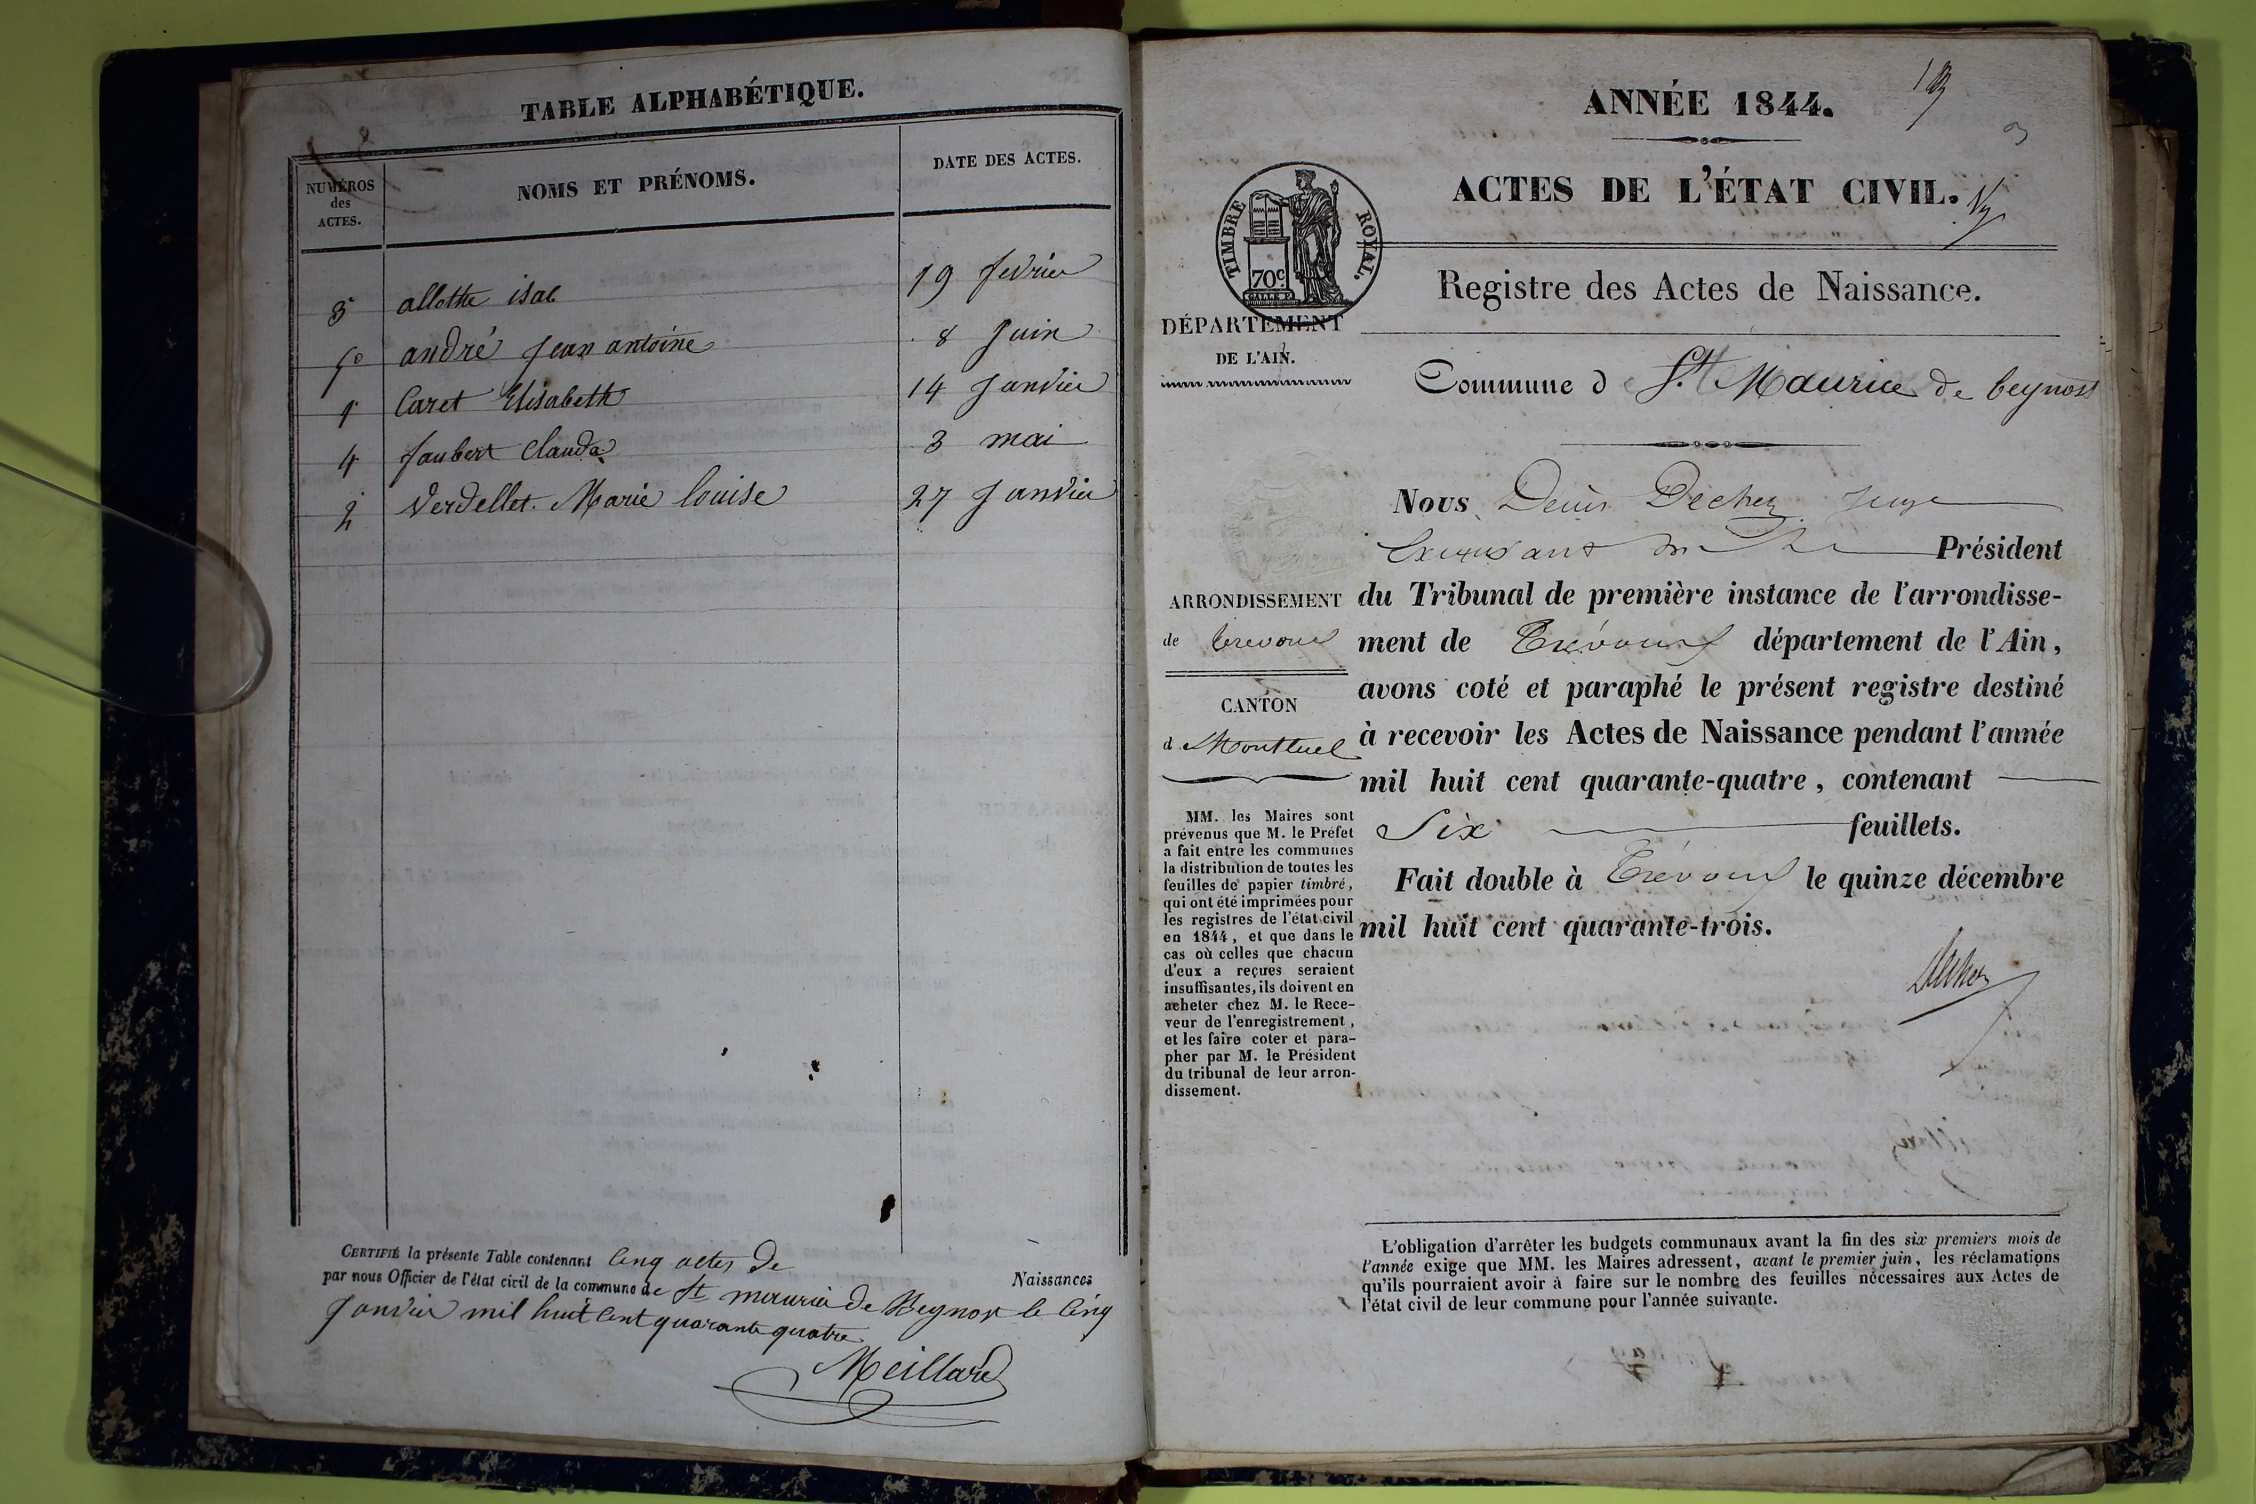 TABLE ALPHABÉTIQUE.
NUMÉROS
des
ACTES.
NOMS ET PRÉNOMS.
DATE DES ACTES.
3 allotte isac 19 fevrier
5 andré Jean antoine 8 Juin
1 Caret Elisabeth 14 Janvier
4 Joubert Claude 3 mai
2 Verdellet Marie louise 27 Janvier
CERTIFIÉ la présente Table contenant Cinq actes de Naissances
par nous Officier de l'état civil de la commune de St maurice de Beynost le Cinq
Janvier mil huit Cent quarante quatre
Meillard
ANNÉE 1844.
ACTES DE L'ÉTAT CIVIL.
TIMBRE ROYAL.
70c
Registre des Actes de Naissance.
DÉPARTEMENT
DE L'AIN.
Commune d e St Maurice de beynost
Nous Denis Dechez Juge
Président
ARRONDISSEMENT
de trevoux
CANTON
d Montluel
du Tribunal de première instance de l'arrondisse-
ment de Trévoux département de l'Ain,
avons coté et paraphé le présent registre destiné
à recevoir les Actes de Naissance pendant l'année
mil huit cent quarante-quatre, contenant
Six feuillets.
Fait double à Trévoux le quinze décembre
mil huit cent quarante-trois.
MM. les Maires sont
prévenus que M. le Préfet
a fait entre les communes
la distribution de toutes les
feuilles de papier timbré,
qui ont été imprimées pour
les registres de l'état civil
en 1844, et que dans le
cas où celles que chacun
d'eux a reçues seraient
insuffisantes, ils doivent en
acheter chez M. le Rece-
veur de l'enregistrement,
et les faire coter et para-
pher par M. le Président
du tribunal de leur arron-
dissement.
Dechez
L'obligation d'arrêter les budgets communaux avant la fin des six premiers mois de
l'année exige que MM. les Maires adressent, avant le premier juin, les réclamations
qu'ils pourraient avoir à faire sur le nombre des feuilles nécessaires aux Actes de
l'état civil de leur commune pour l'année suivante.